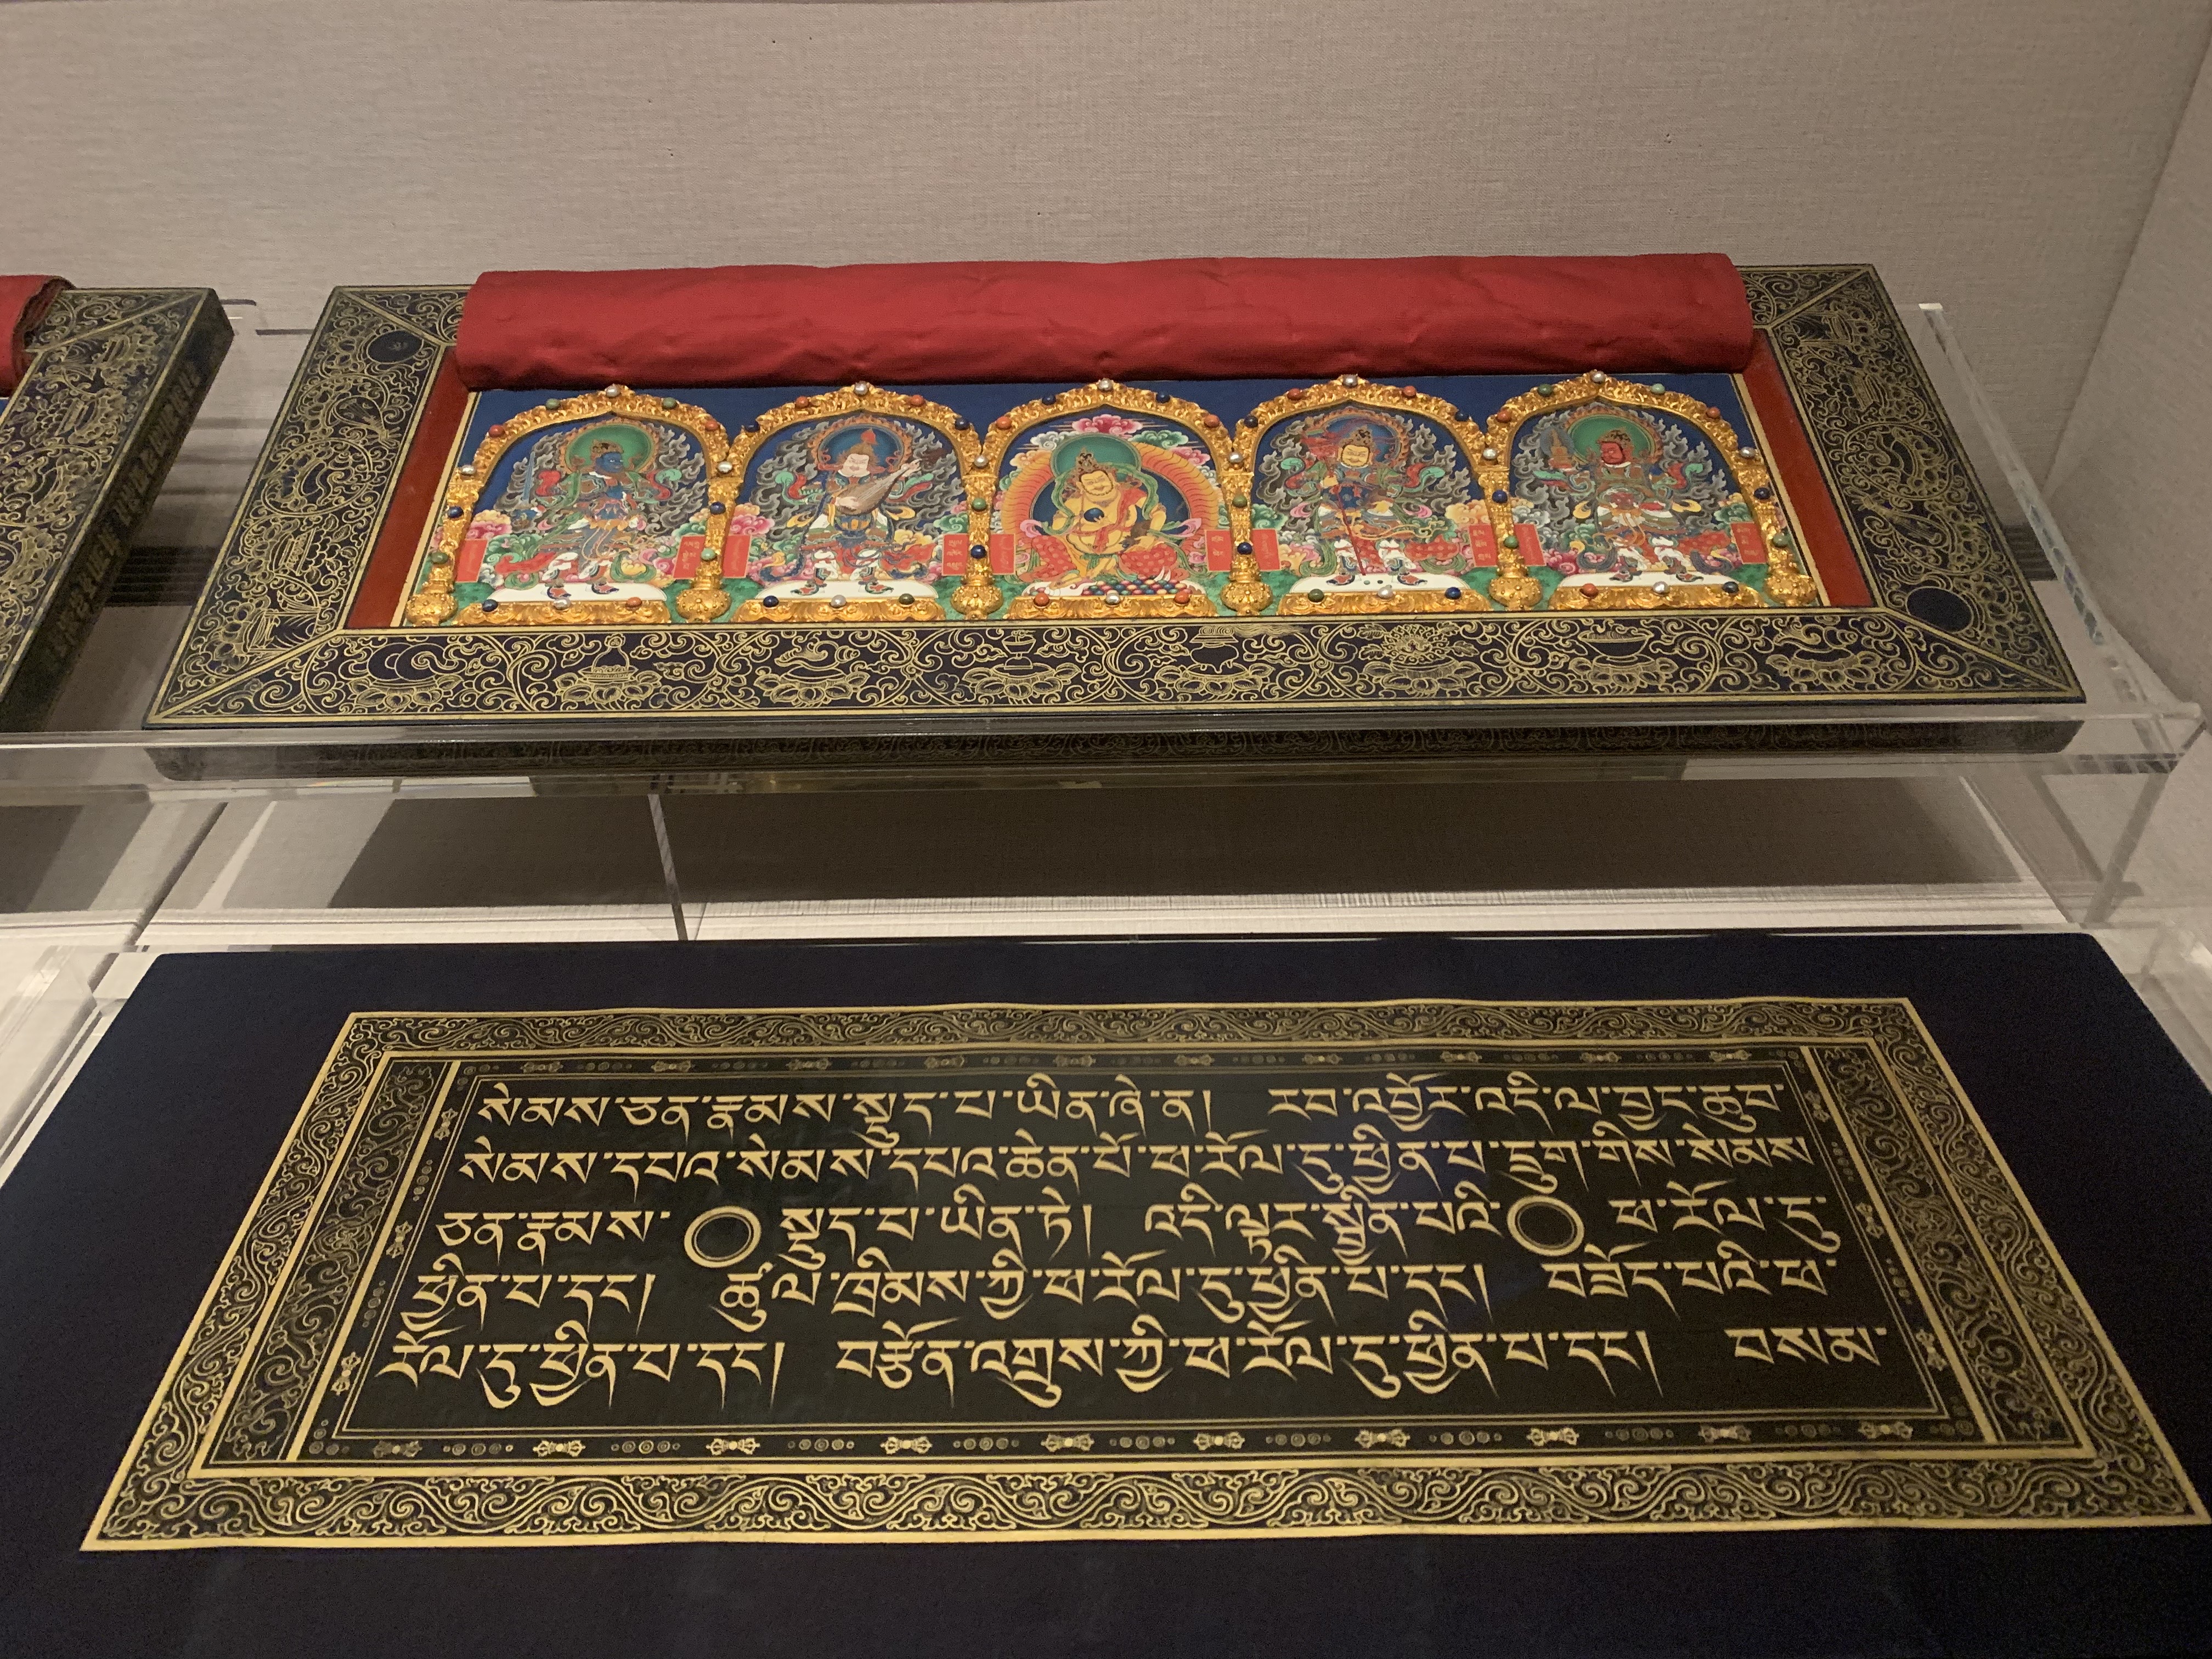 སེམས་ཅན་རྣམས་སྡུད་པ་ཡིན་ཞེ་ན། རབ་འབྱོར་འདི་ལ་བྱང་ཆུབ་
སེམས་དཔའ་སེམས་དཔའ་ཆེན་པོ་ཕ་རོལ་ཏུ་ཕྱིན་པ་དྲུག་གིས་སེམས་
ཅན་རྣམས་ སྡུད་པ་ཡིན་ཏེ། འདི་ལྟར་སྦྱིན་པའི་ ཕ་རོལ་ཏུ་
ཕྱིན་པ་དང། ཚུལ་ཁྲིམས་ཀྱི་ཕ་རོལ་ཏུ་ཕྱིན་པ་དང། བཟོད་པའི་ཕ་
རོལ་ཏུ་ཕྱིན་པ་དང། བརྩོན་འགྲུས་ཀྱི་ཕ་རོལ་ཏུ་ཕྱིན་པ་དང། བསམ་